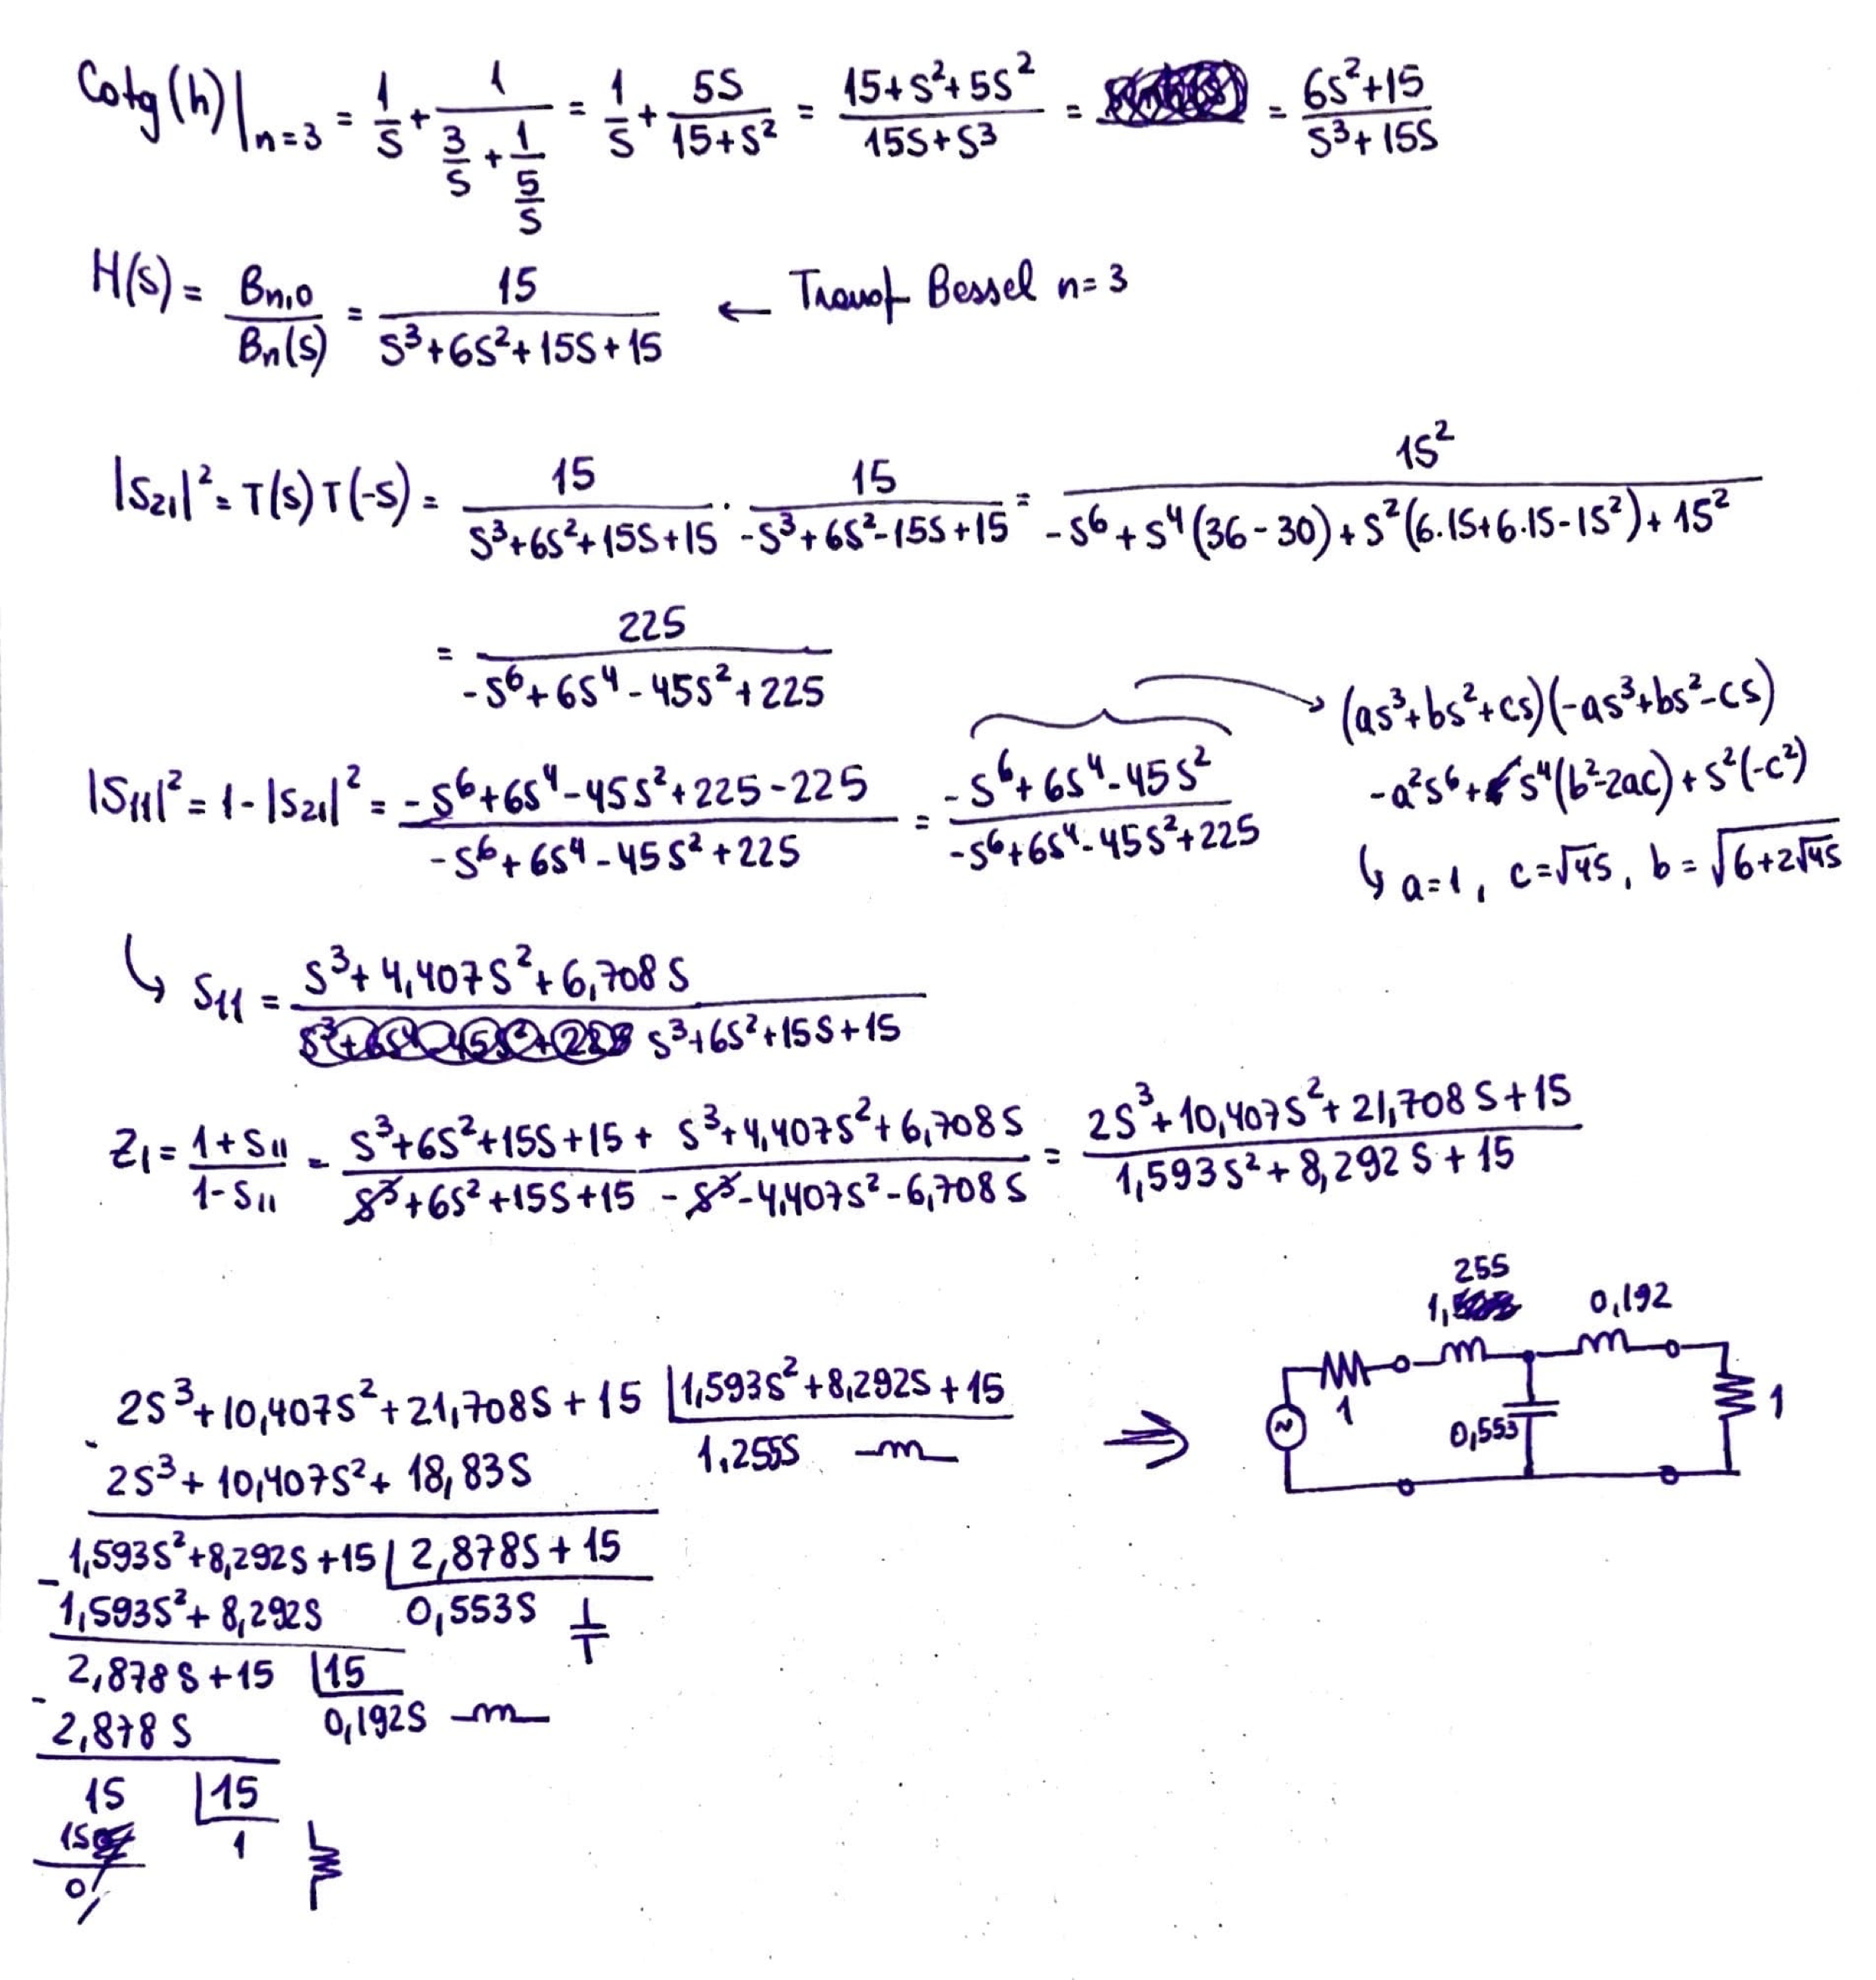 Cotg(h)|n=3 = 1/S + 1/(3/S + 1/(5/S)) = 1/S + 5S/(15+S²) = (15+S²+5S²)/(15S+S³) = = (6S²+15)/(S³+15S)
H(S) = Bn,0/Bn(S) = 15/(S³+6S²+15S+15) ← Transf Bessel n=3
|S21|² = T(S) T(-S) = 15/(S³+6S²+15S+15) · 15/(-S³+6S²-15S+15) = 15²/(-S⁶+S⁴(36-30)+S²(6.15+6.15-15²)+15²)
= 225/(-S⁶+6S⁴-45S²+225)
→ (aS³+bS²+cS)(-aS³+bS²-cS)
|S11|² = 1-|S21|² = (-S⁶+6S⁴-45S²+225-225)/(-S⁶+6S⁴-45S²+225) = (-S⁶+6S⁴-45S²)/(-S⁶+6S⁴-45S²+225)
-a²S⁶+S⁴(b²-2ac)+S²(-c²)
↳ a=1, c=√45, b=√(6+2√45)
↳ S11 = (S³+4,407S²+6,708S)/(S³+6S²+15S+15)
Z1 = (1+S11)/(1-S11) = (S³+6S²+15S+15+S³+4,407S²+6,708S)/(S³+6S²+15S+15-S³-4,407S²-6,708S) = (2S³+10,407S²+21,708S+15)/(1,593S²+8,292S+15)
2S³+10,407S²+21,708S+15 | 1,593S²+8,292S+15
- 2S³+10,407S²+18,83S
1.255S
1,593S²+8,292S+15 | 2,878S+15
- 1,593S²+8,292S
0,553S
2,878S+15 | 15
- 2,878S
0,192S
15 | 15
15
1
0
⇒
255
1,
0,192
1
0,553
1